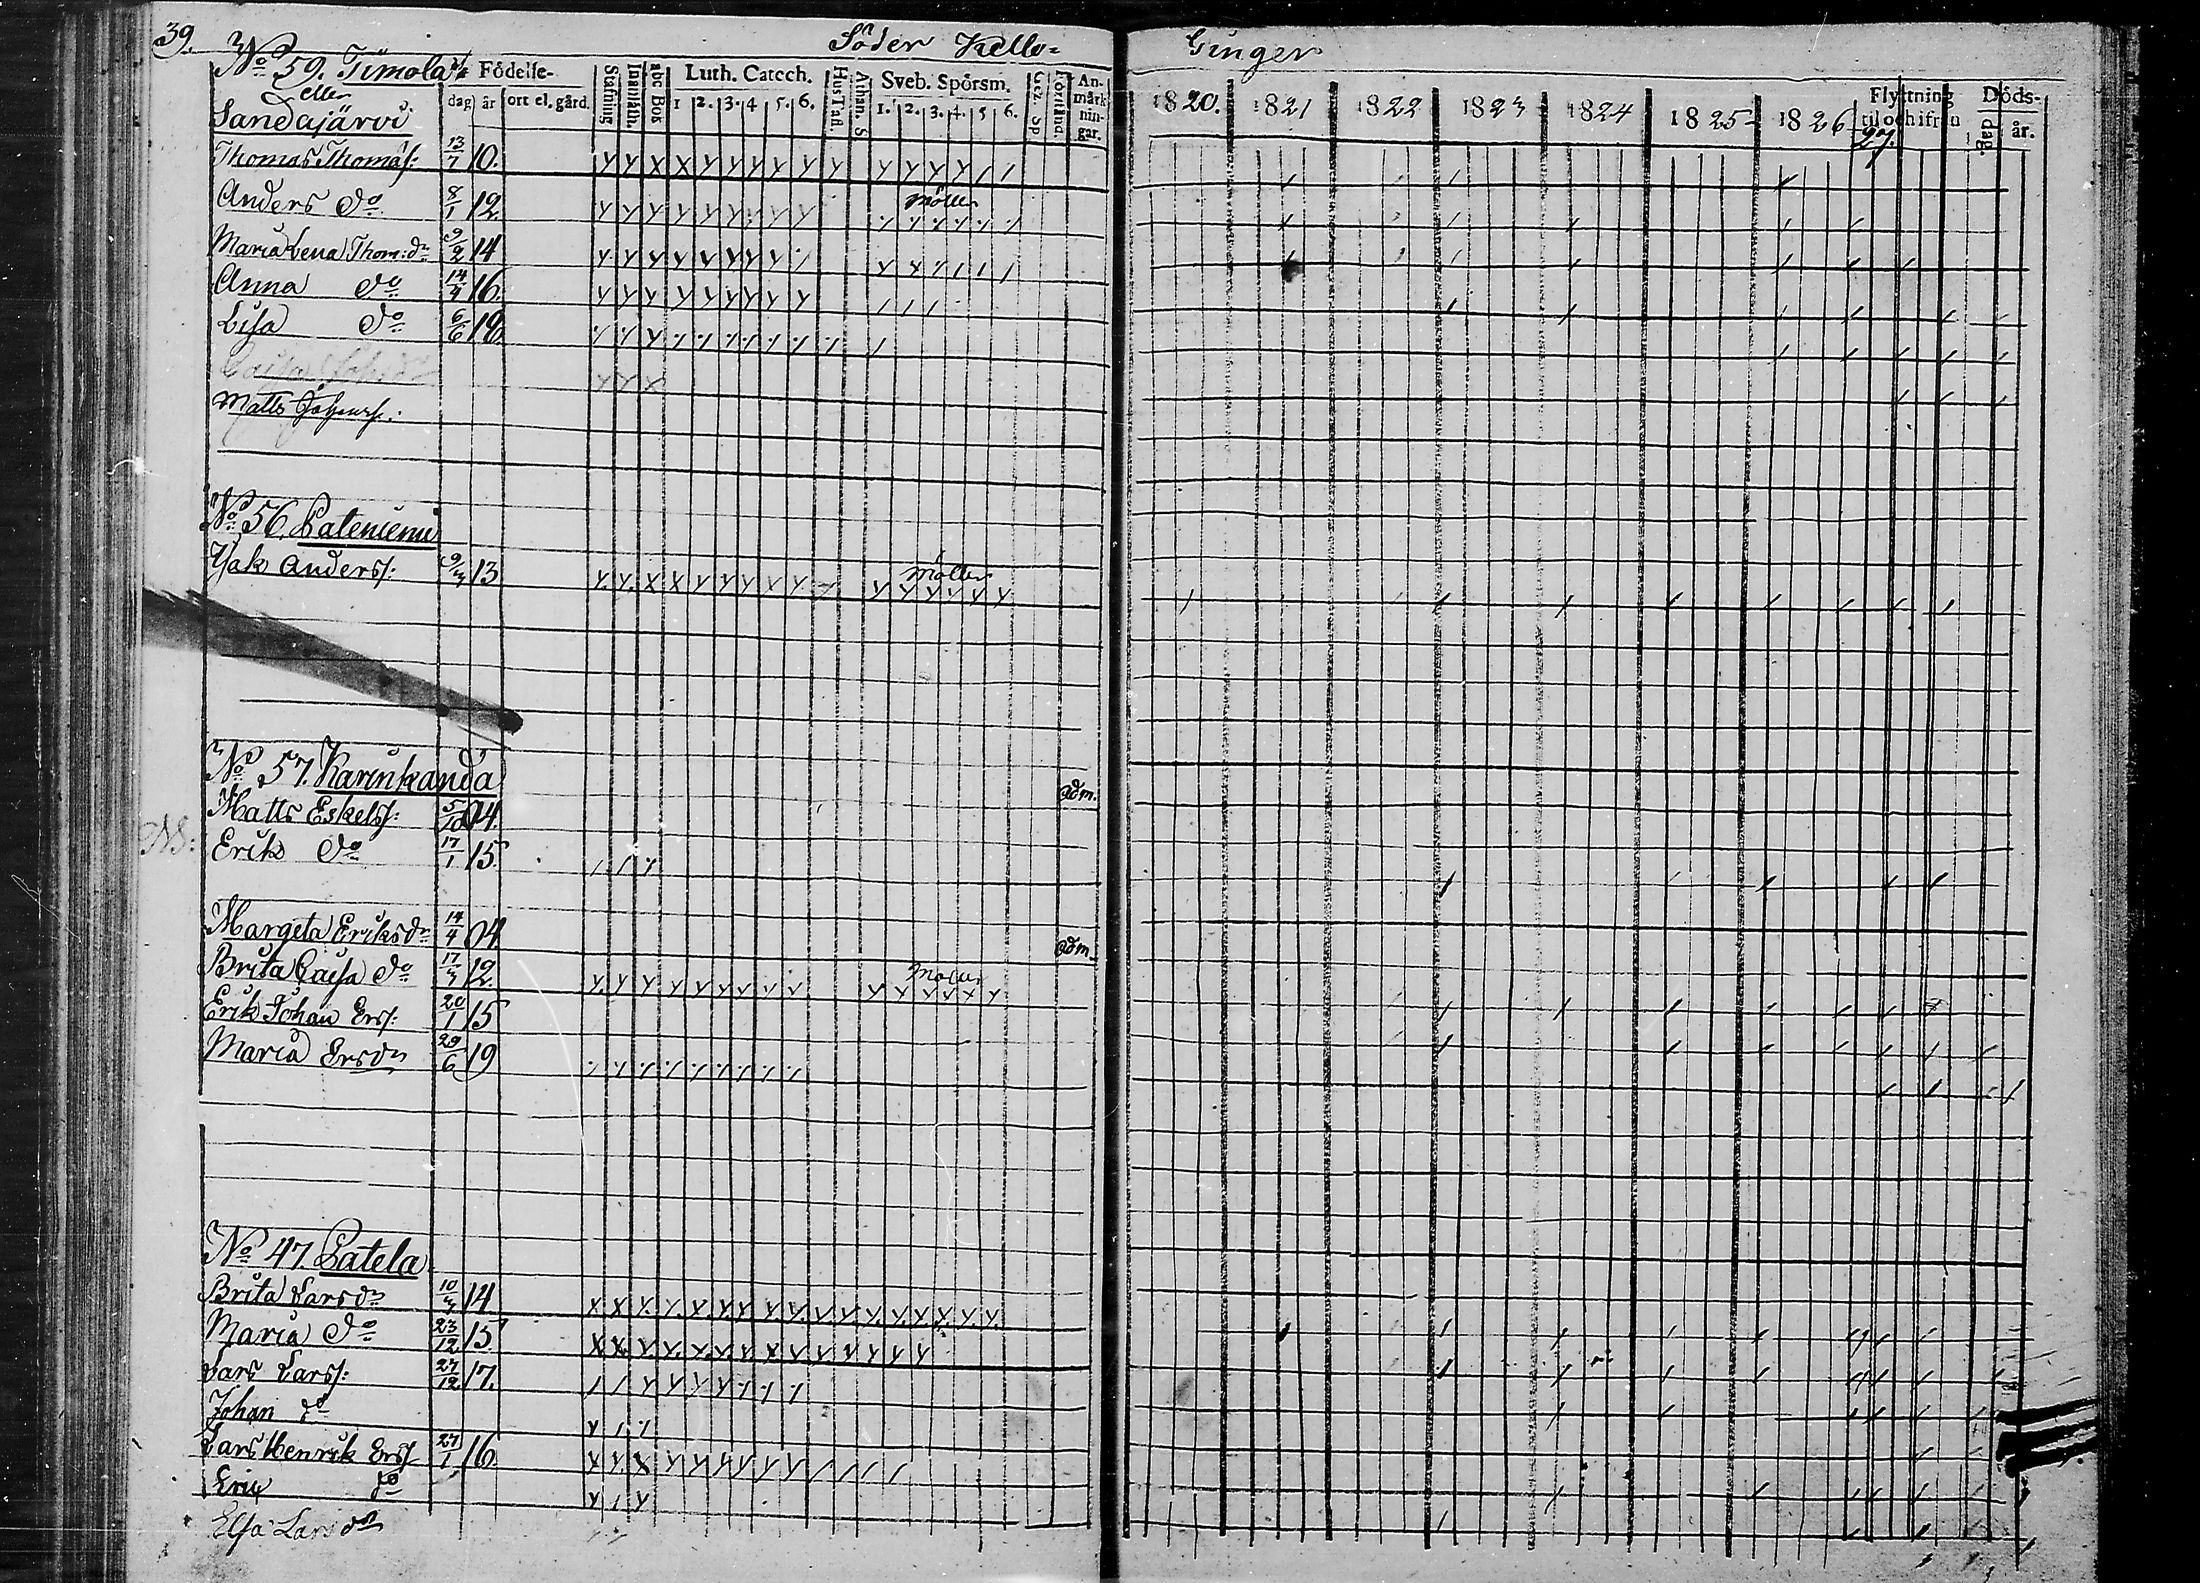 39.
Söder Kello=
Ginger
No 59. Timola
eller
Sandajärvi
Födelse-
dag år ort el. gård.
Stafning
Innanläsn.
abc Bok
Luth. Catech.
1 2. 3. 4 5. 6.
Hus Tafl.
Athan. S.
Sveb. Spörsm.
1. 2. 3. 4. 5 6.
Förstånd.
An-
märk
nin-
gar.
1820. 1821 1822 1823 1824 1825 1826 27.
Flyttning
til och ifrån
Döds-
dag. år.
Thomas Thomas: 13/7 10.
Anders do 8/1 12 Möller
Maria Lena Thom:dr 9/2 14
Anna do 14/4 16.
Lisa do 6/6 18
Matts
No 56. Lateniemi
Anders: 13 Möller
No 57. Karinkanda
Matts Eskels: 5/10 04. adm.
Erik do 17/1 15.
Margeta Eriksdr 14/4 04 adm.
Brita Caisa do 12.
Erik Johan Ers: 20/1 15
Maria Ersdr 29/6 19
No 47. Latela
Brita Larsdr 14
Maria do 23/12 15
Lars Lars: 27/12 17.
Johan do
Lars Henrik Ers: 27/1 16.
Eric do
Elsa Larsdr